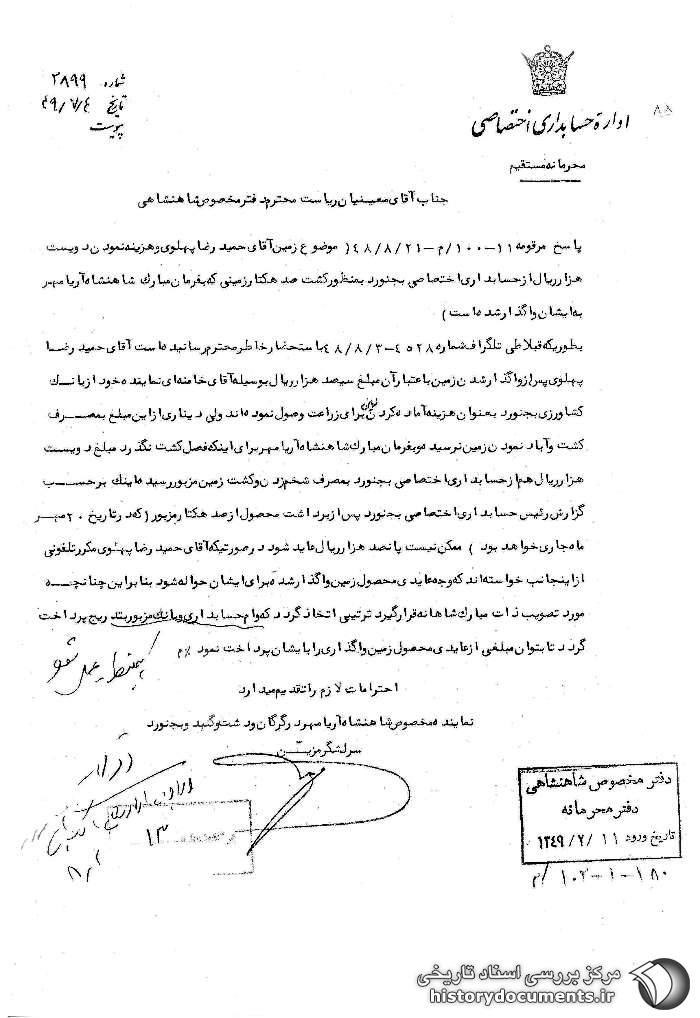 شماره ۲۸۹۹
تاریخ ۴۹/۷/۴
پیوست
۸۸
اداره حسابداری اختصاصی
محرمانه مستقیم
جناب آقای معینیان ریاست محترم دفتر مخصوص شاهنشاهی
پاسخ مرقومه ۱۱-۱۰۰/م-۴۸/۸/۲۱ (موضوع زمین آقای حمید رضا پهلوی و هزینه نمودن دویست
هزار ریال از حسابداری اختصاصی بجنورد بمنظور کشت صد هکتار زمینی که بفرمان مبارک شاهنشاه آریامهر
به ایشان واگذار شده است)
بطوریکه قبلا طی تلگراف شماره ۴۵۲۸-۴۸/۸/۳ باستحضار خاطر محترم رسانیده است آقای حمید رضا
پهلوی پس از واگذار شدن زمین باعتبار آن مبلغ سیصد هزار ریال بوسیله آقای خامنه‌ای نماینده خود از بانک
کشاورزی بجنورد بعنوان هزینه آماده کردن زمین برای زراعت وصول نموده‌اند ولی دیناری از این مبلغ بمصرف
کشت و آباد نمودن زمین نرسیده و بفرمان مبارک شاهنشاه آریامهر برای اینکه فصل کشت نگذرد مبلغ دویست
هزار ریال هم از حسابداری اختصاصی بجنورد بمصرف شخم زدن و کشت زمین مزبور رسیده اینک برحسب
گزارش رئیس حسابداری اختصاصی بجنورد پس از برداشت محصول از صد هکتار مزبور (که در تاریخ ۲۰ مهر
ماه جاری خواهد بود) ممکن نیست پانصد هزار ریال عاید شود در صورتیکه آقای حمید رضا پهلوی مکرر تلفونی
از اینجانب خواسته‌اند که وجه عایدی محصول زمین واگذار شده برای ایشان حواله شود بنابراین چنانچه
مورد تصویب ذات مبارک شاهانه قرار گیرد ترتیبی اتخاذ گردد که وام حسابداری و بانک مزبور بتدریج پرداخت
گردد تا بتوان مبلغی از عایدی محصول زمین واگذاری را بایشان پرداخت نمود٪م
بهمین طریق عمل شود
احترامات لازم را تقدیم میدارد
نماینده مخصوص شاهنشاه آریامهر در گرگان و دشت و گنبد و بجنورد
سرلشگر مزین
۱۳
۸/۲
دفتر مخصوص شاهنشاهی
دفتر محرمانه
تاریخ ورود ۱۱ /۷/ ۱۳۴۹
۱۸۰-۱-۱۰۲/م
مرکز بررسی اسناد تاریخی
historydocuments.ir